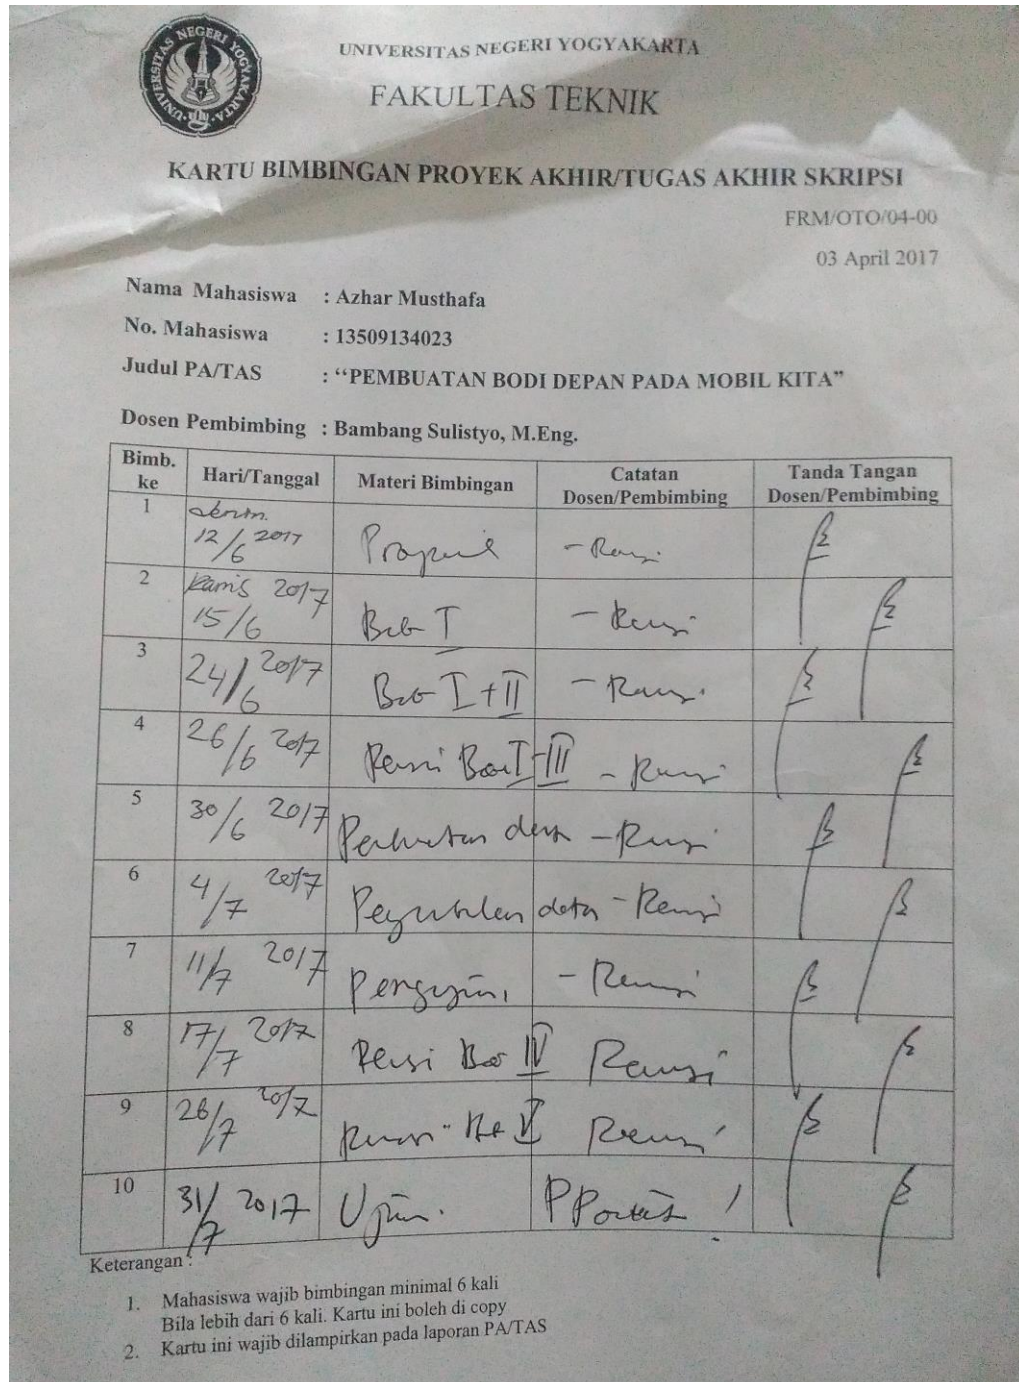 UNIVERSITAS NEGERI YOGYAKARTA
UNIVERSITAS NEGERI YOGYAKARTA
FAKULTAS TEKNIK
KARTU BIMBINGAN PROYEK AKHIR/TUGAS AKHIR SKRIPSI
FRM/OTO/04-00
03 April 2017
Nama Mahasiswa : Azhar Musthafa
No. Mahasiswa : 13509134023
Judul PA/TAS : “PEMBUATAN BODI DEPAN PADA MOBIL KITA”
Dosen Pembimbing : Bambang Sulistyo, M.Eng.
Bimb. ke Hari/Tanggal Materi Bimbingan Catatan Dosen/Pembimbing Tanda Tangan Dosen/Pembimbing
1 12/6 2017 - Revisi
2 Kamis 2017 15/6 Bab I - Revisi
3 24/6 2017 Bab I + II - Revisi
4 26/6 2017 Revisi Bab I-III - Revisi
5 30/6 2017 - Revisi
6 4/7 2017 data - Revisi
7 11/7 2017 Pengujian - Revisi
8 17/7 2017 Revisi Bab IV Revisi
9 26/7 2017 Revisi Bab V Revisi
10 31/7 2017 Ujian.
Keterangan :
1. Mahasiswa wajib bimbingan minimal 6 kali
Bila lebih dari 6 kali. Kartu ini boleh di copy
2. Kartu ini wajib dilampirkan pada laporan PA/TAS